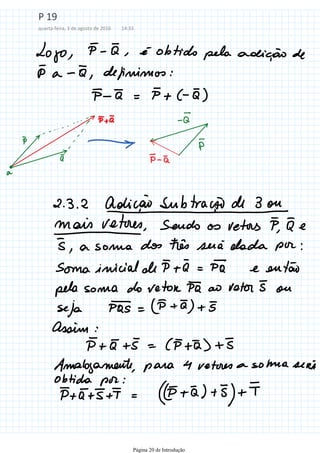 P 19
quarta-feira, 3 de agosto de 2016 14:33
Logo, P̄-Q̄, é obtido pela adição de
P̄ a -Q̄, definimos:
P̄-Q̄ = P̄+(-Q̄)
P̄+Q̄
-Q̄
P̄
P̄
Q̄
P̄-Q̄
a
2.3.2 Adição Subtração de 3 ou
mais vetores, Sendo os vetores P̄, Q̄ e
S̄, a soma dos três será dada por:
Soma inicial de P̄+Q̄ = P̄Q̄ e então
pela soma do vetor P̄Q̄ ao vetor S̄ ou
seja P̄Q̄S̄ = (P̄+Q̄)+S̄
Assim:
P̄+Q̄+S̄ = (P̄+Q̄)+S̄
Analogamente, para 4 vetores a soma será
obtida por:
P̄+Q̄+S̄+T̄ = ((P̄+Q̄)+S̄)+T̄
Página 20 de Introdução